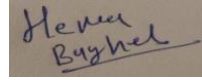 Hema
Baghel